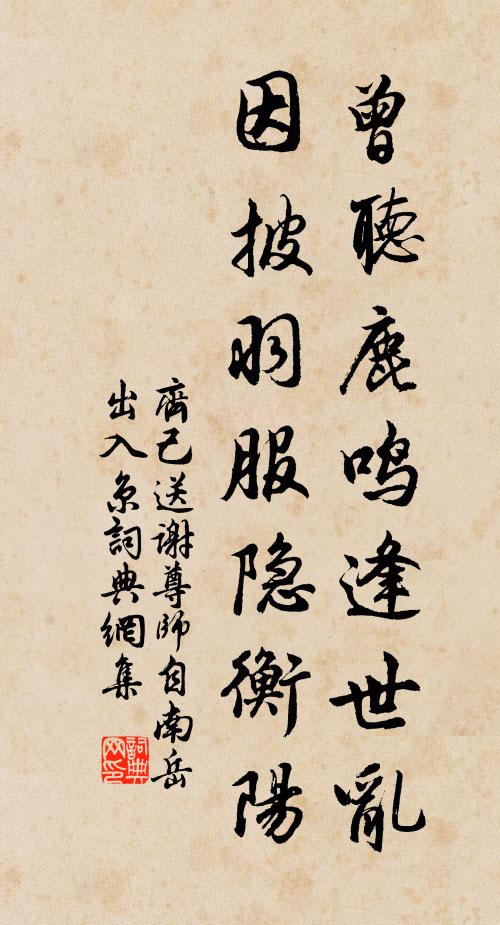 曾聽鹿鳴逢世亂
因披羽服隐衡陽
齊己送謝尊師自南岳
出入京詞典網集
詞典
网印